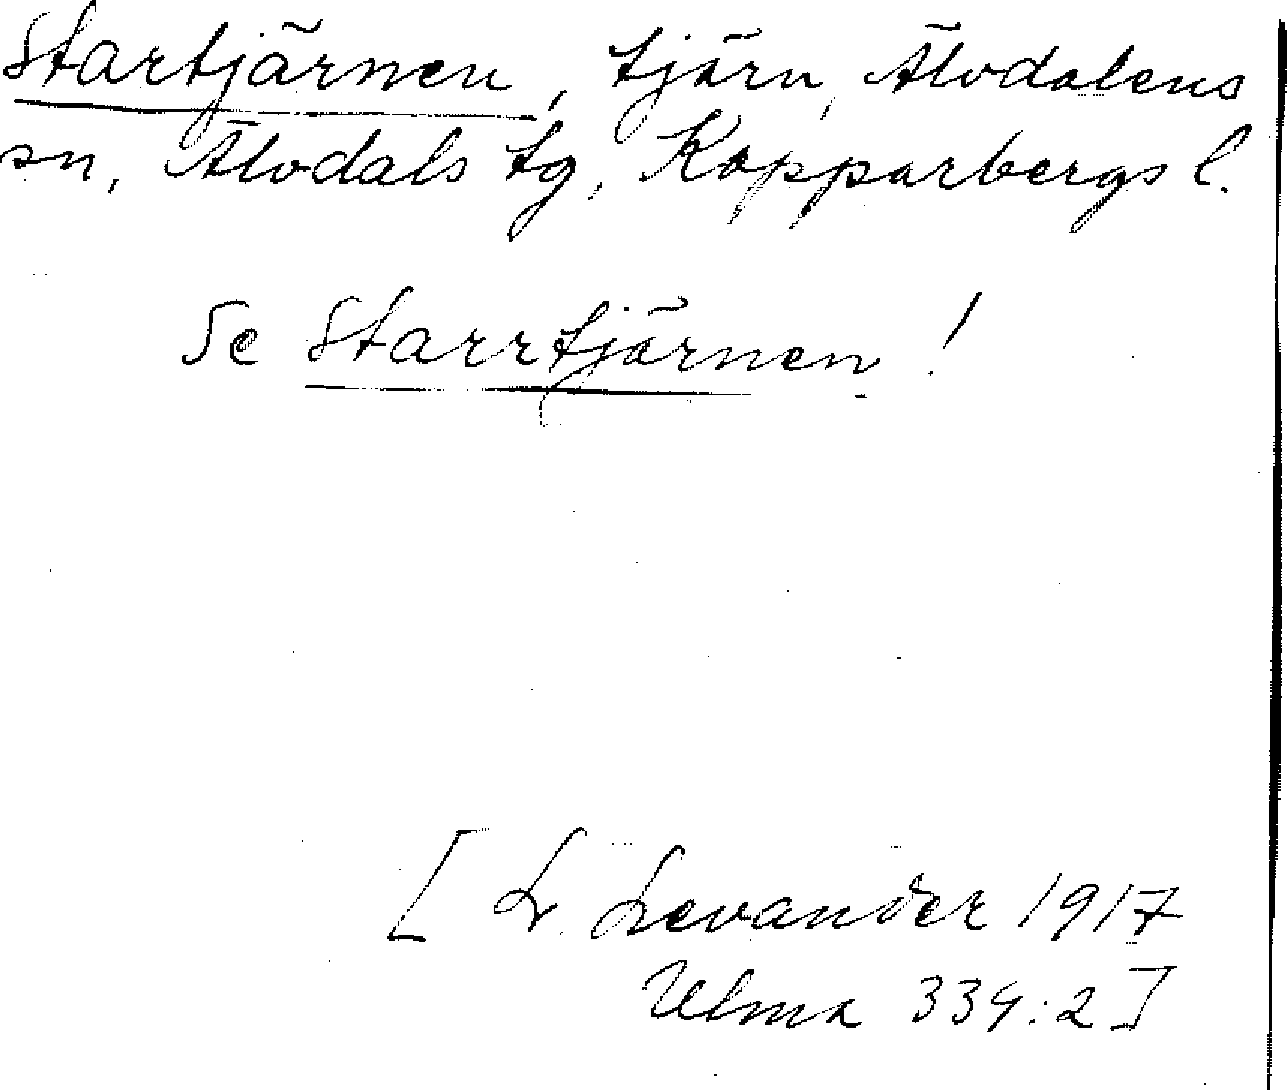 Startjärnen, tjärn, Älvdalens
sn, Älvdals tg, Kopparbergs l.
Se Starrtjärnen!
[L. Levander 1917
Ulma 334:2]